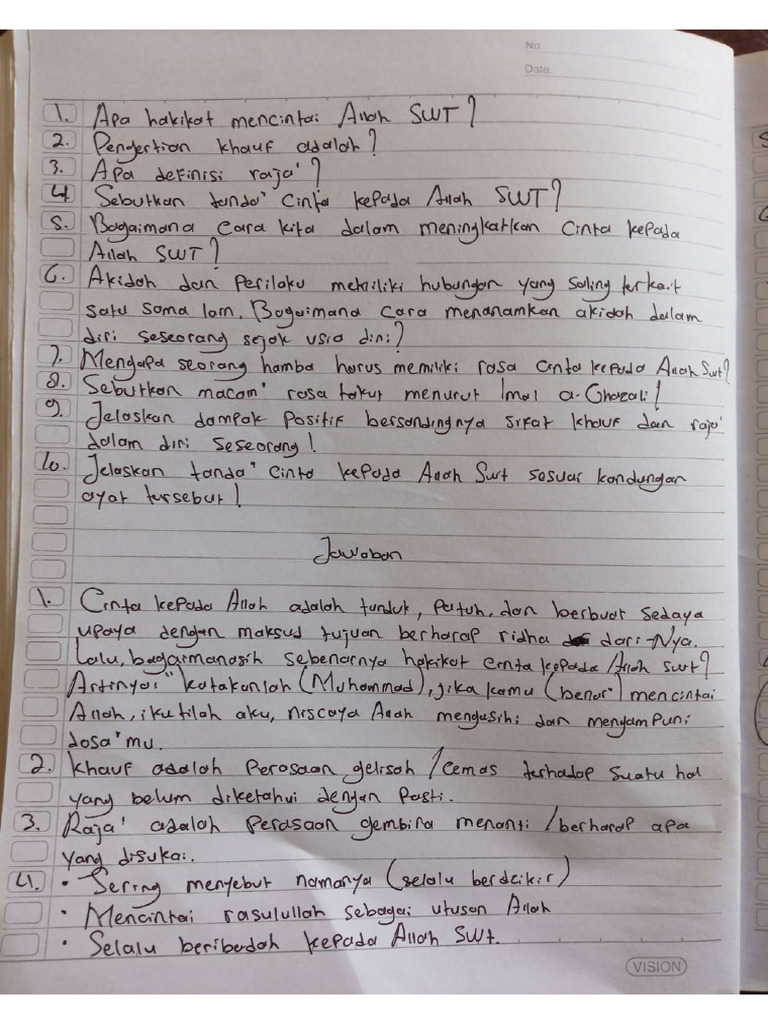 No.
Date.
1. Apa hakikat mencintai Allah SWT?
2. Pengertian khauf adalah?
3. Apa definisi raja'?
4. Sebutkan tanda" cinta kepada Allah SWT?
5. Bagaimana cara kita dalam meningkatkan cinta kepada
Allah SWT?
6. Akidah dan Perilaku memiliki hubungan yang saling terkait
satu sama lain. Bagaimana cara menanamkan akidah dalam
diri seseorang sejak usia dini?
7. Mengapa seorang hamba harus memiliki rasa cinta kepada Allah Swt?
8. Sebutkan macam" rasa takut menurut Imal a-Ghazali!
9. Jelaskan dampak positif bersandingnya sifat khauf dan raja'
dalam diri seseorang!
10. Jelaskan tanda" cinta kepada Allah Swt sesuai kandungan
ayat tersebut!
Jawaban
1. Cinta kepada Allah adalah tunduk, patuh, dan berbuat sedaya
upaya dengan maksud tujuan berharap ridha dari-Nya.
Lalu, bagaimanasih sebenarnya hakikat cinta kepada Allah swt?
Artinya: "katakanlah (Muhammad), jika kamu (benar") mencintai
Allah, ikutilah aku, niscaya Allah mengasihi dan mengampuni
dosa"mu.
2. Khauf adalah Perasaan gelisah / cemas terhadap suatu hal
yang belum diketahui dengan Pasti.
3. Raja' adalah perasaan gembira menanti / berharap apa
yang disukai.
4. • Sering menyebut namanya (selalu berdzikir)
• Mencintai rasulullah sebagai utusan Allah
• Selalu beribadah kepada Allah SWt.
VISION